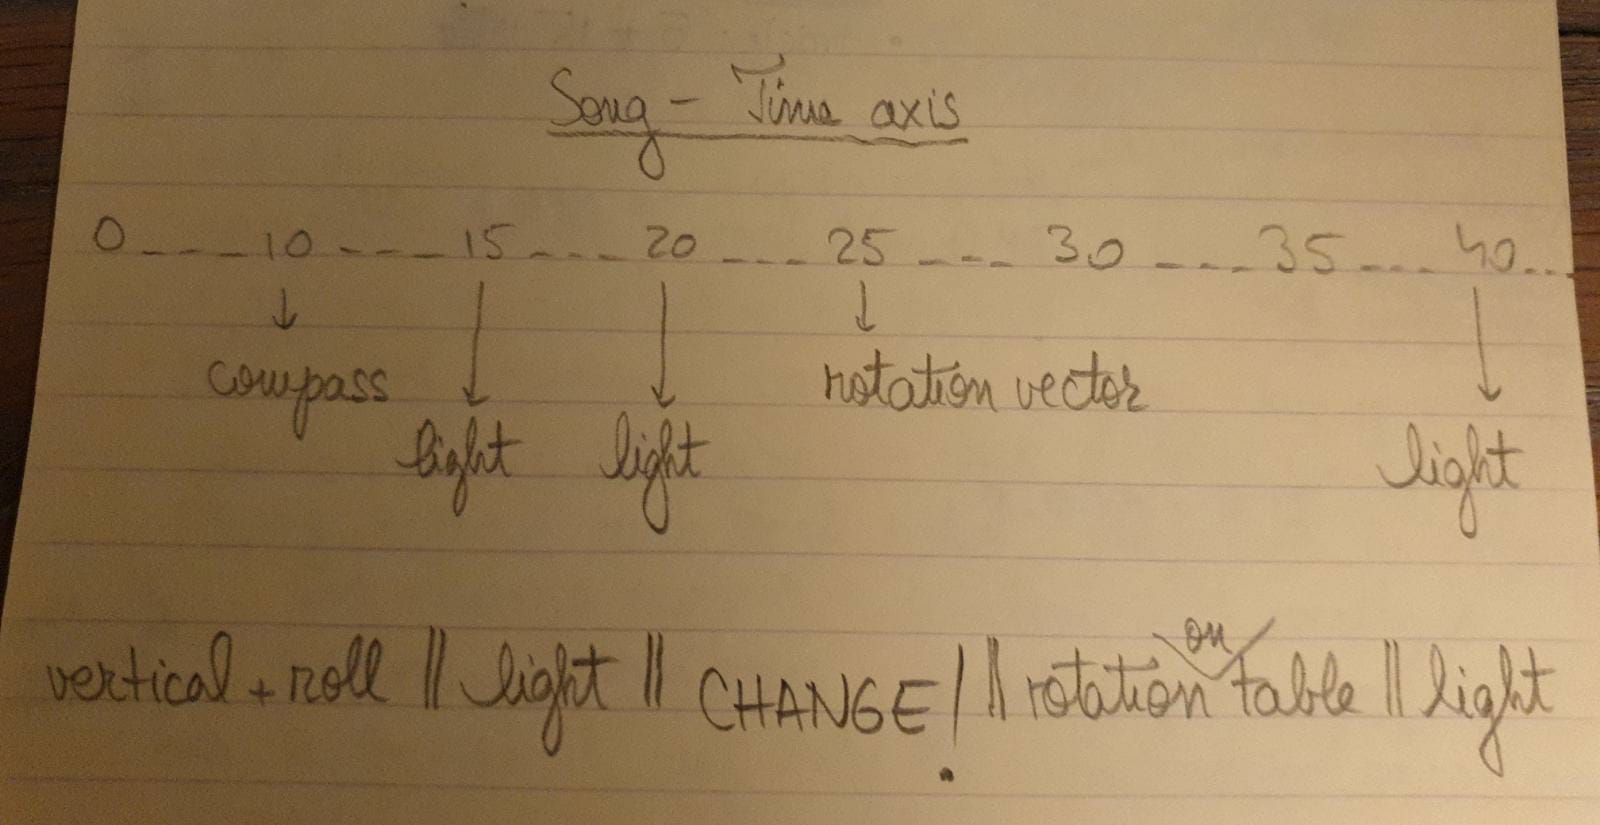 Song - Time axis
0 _ _ _ 10 _ _ _ 15 _ _ _ 20 _ _ _ 25 _ _ _ 30 _ _ _ 35 _ _ _ 40 ...
↓ ↓ ↓ ↓ ↓
compass rotation vector
light light light
vertical + roll || light || CHANGE! || rotation on table || light